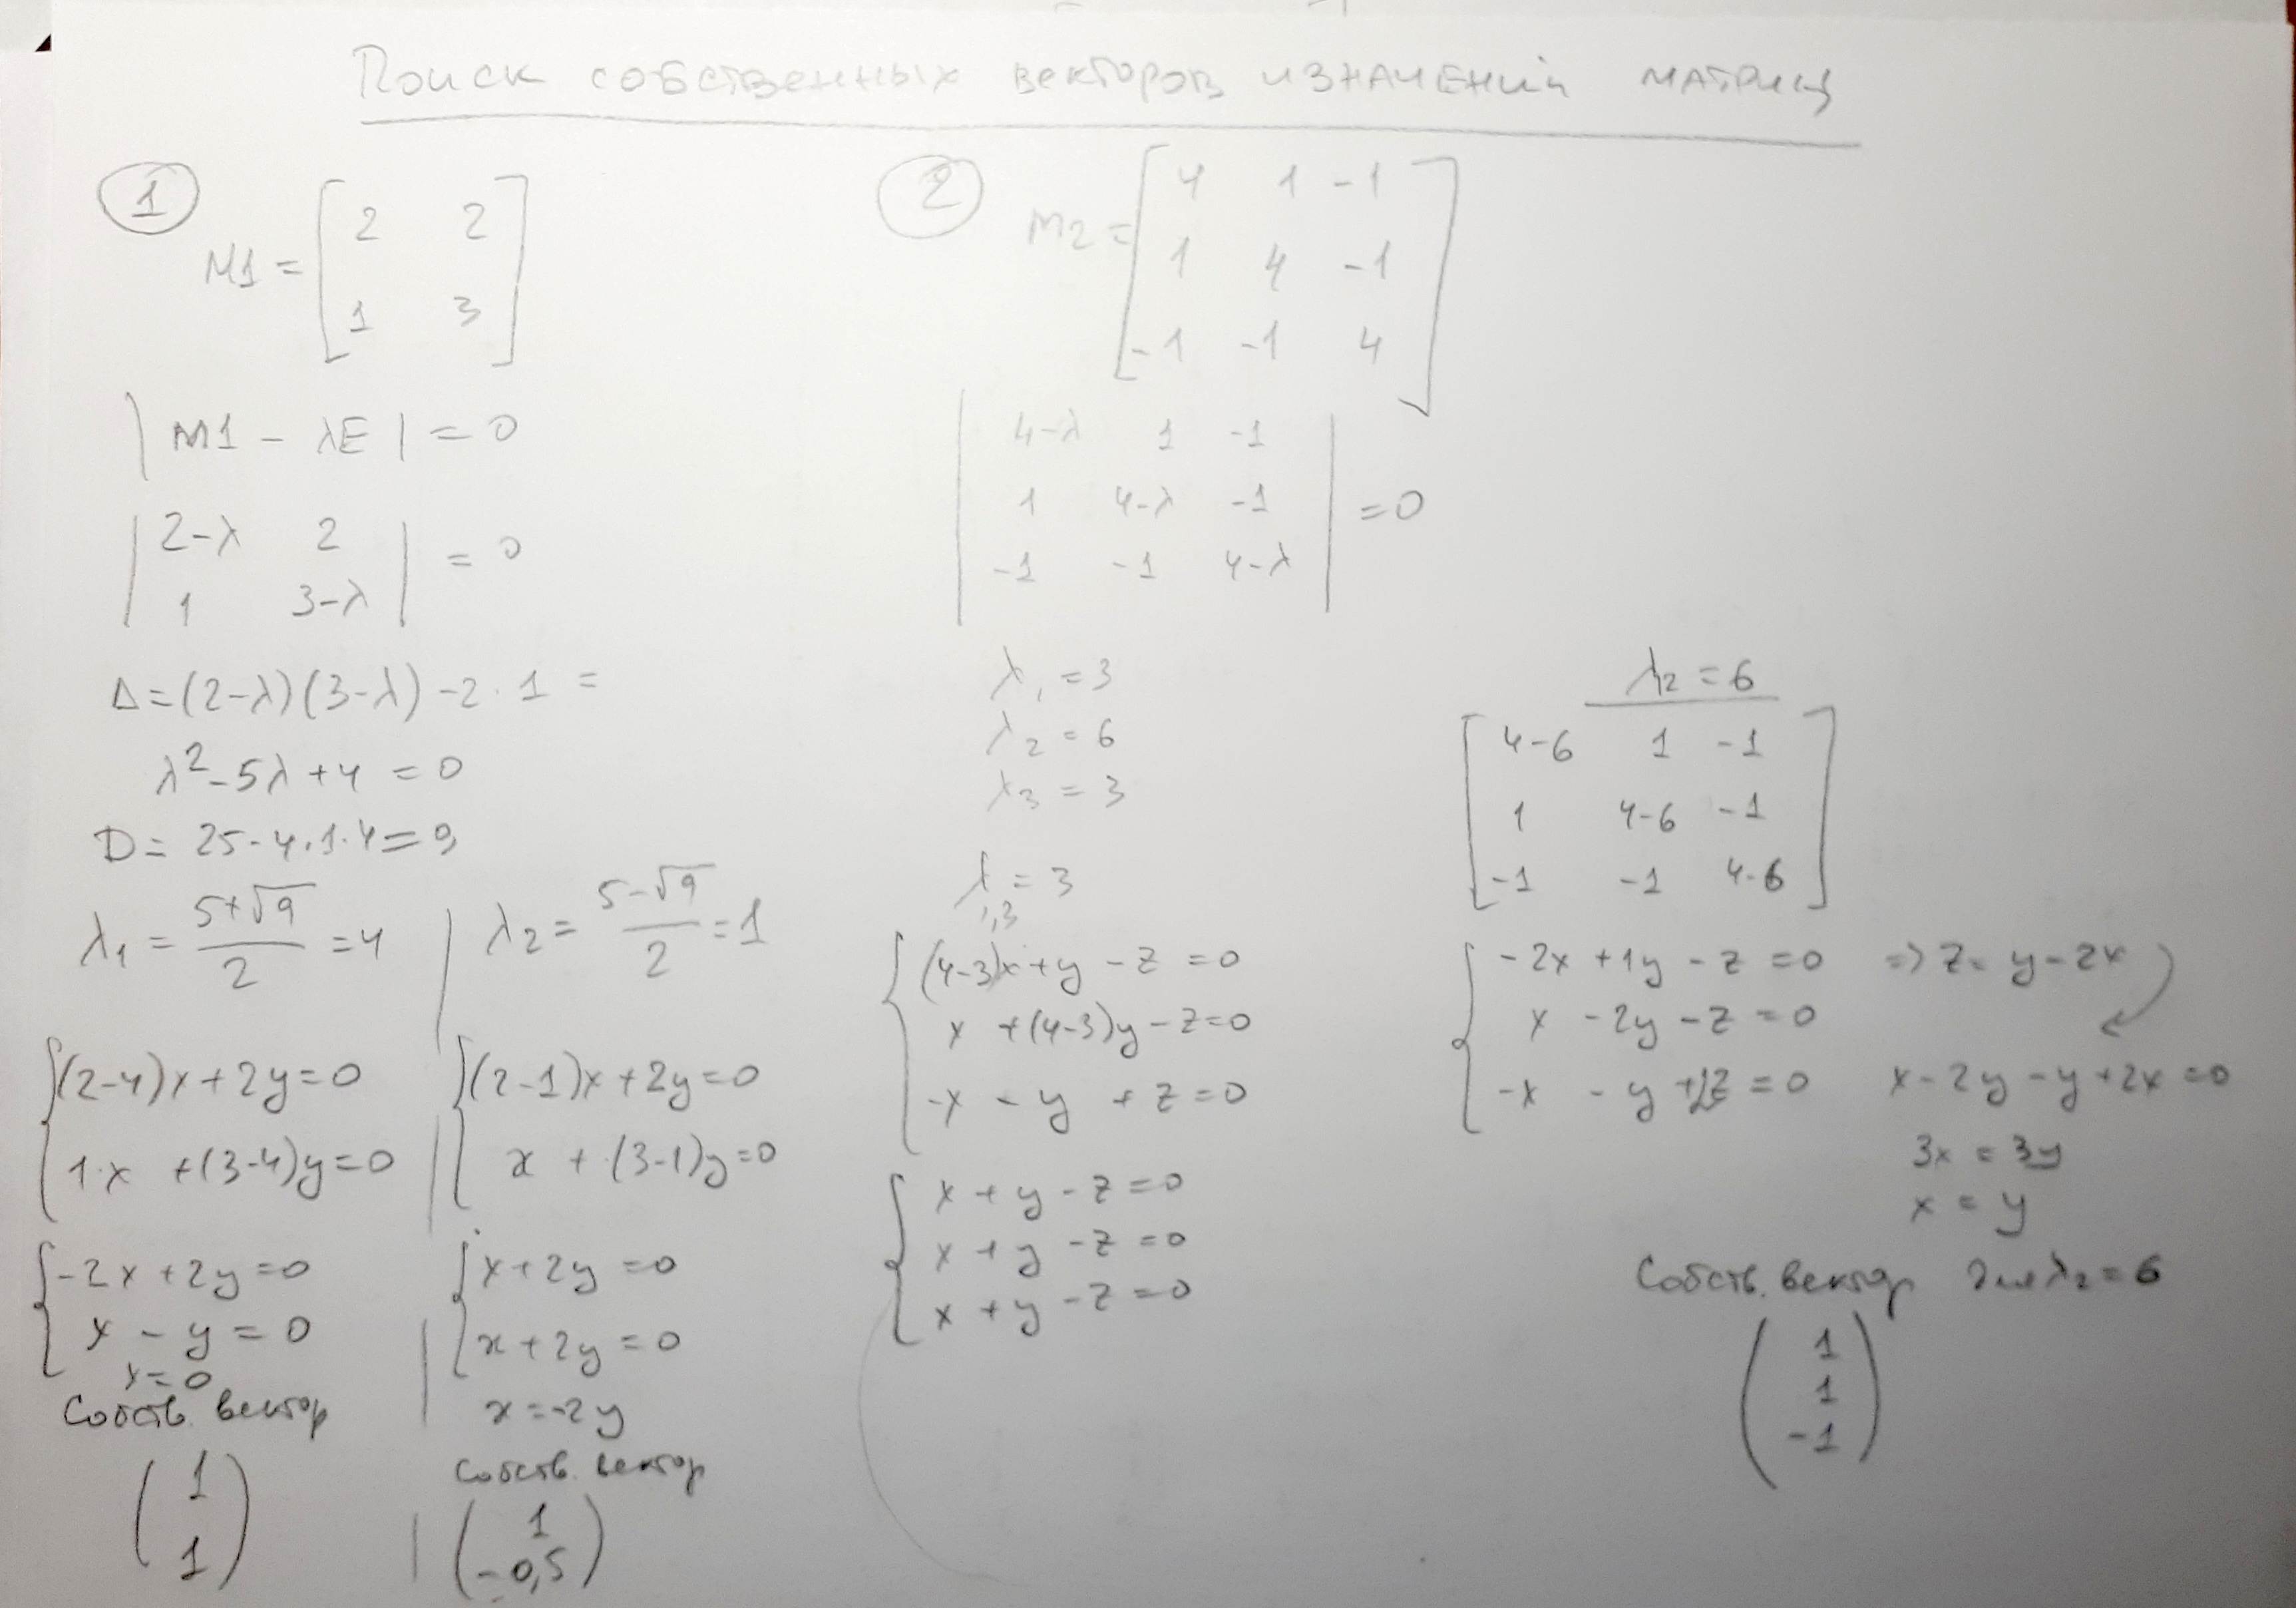 Поиск собственных векторов и значений матриц
1
M1 = [ 2 2
1 3 ]
| M1 - λE | = 0
| 2-λ 2
1 3-λ | = 0
Δ = (2-λ)(3-λ) - 2 · 1 =
λ² - 5λ + 4 = 0
D = 25 - 4 · 1 · 4 = 9
λ1 = (5+√9)/2 = 4
{ (2-4)x + 2y = 0
1·x + (3-4)y = 0
{ -2x + 2y = 0
x - y = 0
x = 0
Собств. вектор
( 1
1 )
λ2 = (5-√9)/2 = 1
{ (2-1)x + 2y = 0
x + (3-1)y = 0
{ x + 2y = 0
x + 2y = 0
x = -2y
Собств. вектор
( 1
-0,5 )
2
M2 = [ 4 1 -1
1 4 -1
-1 -1 4 ]
| 4-λ 1 -1
1 4-λ -1
-1 -1 4-λ | = 0
λ1 = 3
λ2 = 6
λ3 = 3
λ1,3 = 3
{ (4-3)x + y - z = 0
x + (4-3)y - z = 0
-x - y + z = 0
{ x + y - z = 0
x + y - z = 0
x + y - z = 0
λ2 = 6
[ 4-6 1 -1
1 4-6 -1
-1 -1 4-6 ]
{ -2x + 1y - z = 0 => z = y - 2x
x - 2y - z = 0
-x - y + z = 0 x - 2y - y + 2x = 0
3x = 3y
x = y
Собств. вектор для λ2 = 6
( 1
1
-1 )